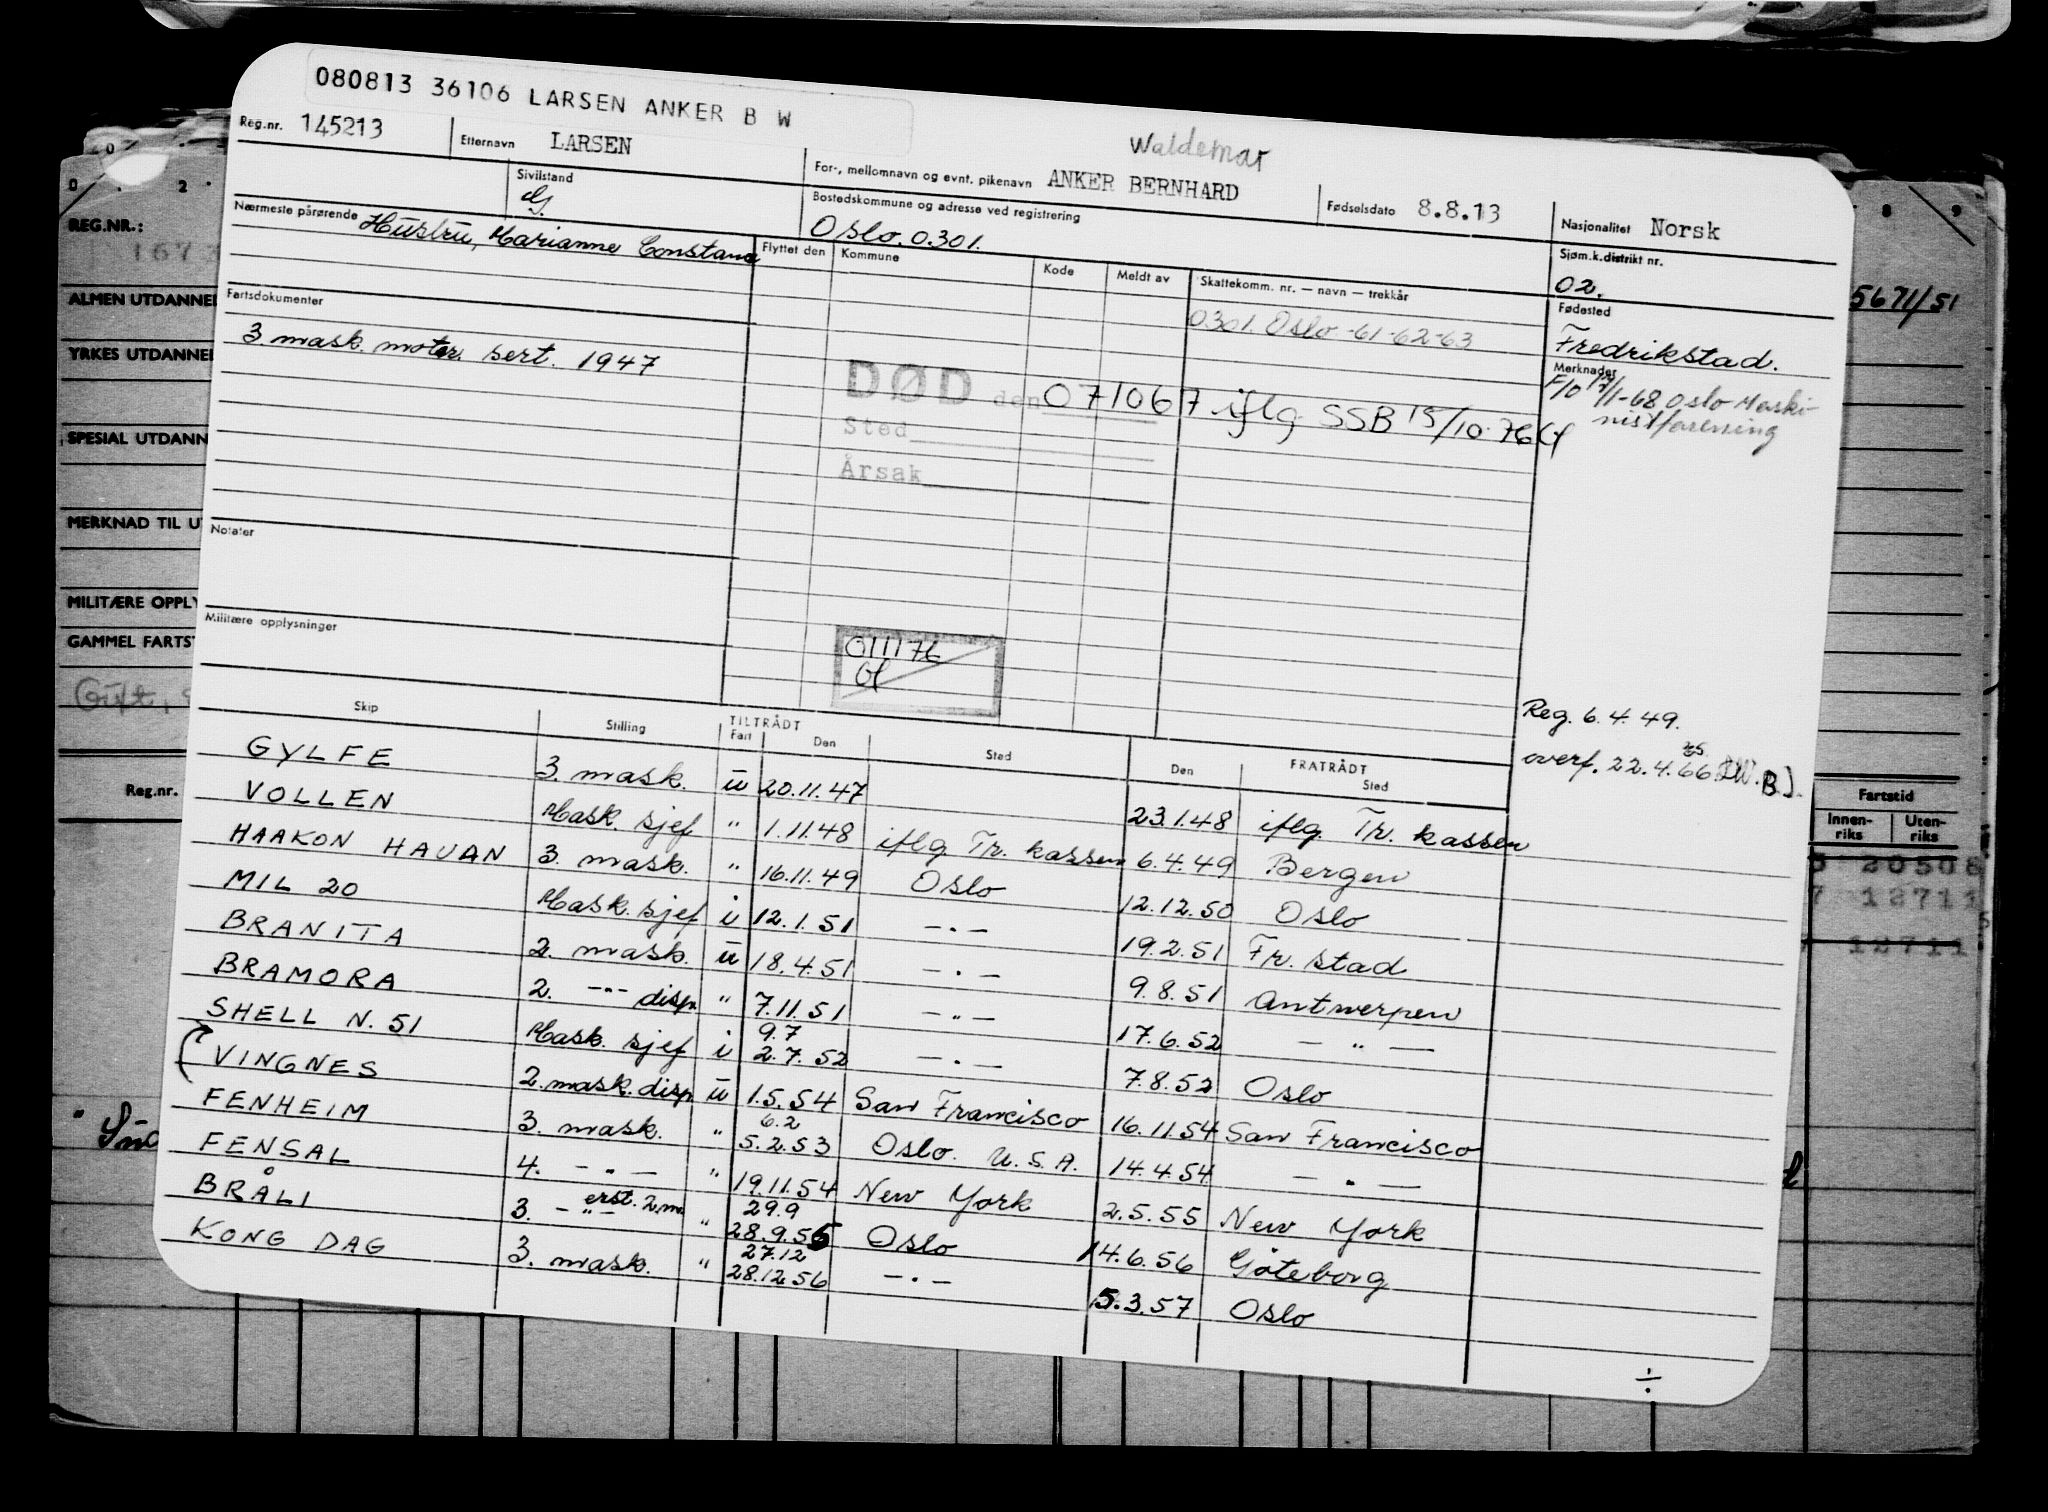 080813 36106 LARSEN ANKER B W
Reg.nr. 145213
Etternavn LARSEN
Waldemar
For-, mellomnavn og evnt. pikenavn ANKER BERNHARD
Fødselsdato 8.8.13
Nasjonalitet Norsk
Sivilstand
G.
Bostedskommune og adresse ved registrering
Oslo. 0301.
Sjøm.k.distrikt nr.
02.
Nærmeste pårørende Hustru, Marianne Constance
Flyttet den Kommune Kode Meldt av Skattekomm. nr. — navn — trekkår
0301. Oslo -61-62-63
Fødested
Fredrikstad.
Fartsdokumenter
3. mask. motor. sert. 1947
Merknader
F/O 17/1-68 Oslo Maski-
nistforening
DØD den 071067 iflg SSB 15/10.76
Sted
Årsak
Notater
Militære opplysninger
011176
Reg. 6.4.49.
overf. 22.4.66
Skip Stilling TILTRÅDT Fart Den Sted FRATRÅDT Den Sted
GYLFE 3. mask. u 20.11.47 23.1.48 iflg. Tr. kassen
VOLLEN Mask. sjef " 1.11.48 iflg Tr. kassen 6.4.49 Bergen
HAAKON HAUAN 3. mask. " 16.11.49 Oslo 12.12.50 Oslo
MIL 20 Mask. sjef i 12.1.51 —.— 19.2.51 Fr. stad
BRANITA 2. mask. u 18.4.51 —.— 9.8.51 Antwerpen
BRAMORA 2. —"— disp " 7.11.51 —"— 17.6.52 — " —
SHELL N. 51 Mask. sjef i 9.7 2.7.52 —.— 7.8.52 Oslo
VINGNES 2. mask. disp u 1.5.54 San Francisco 16.11.54 San Francisco
FENHEIM 3. mask. " 6.2 5.2.53 Oslo. U.S.A. 14.4.54 — " —
FENSAL 4. —"— " 19.11.54 New York 2.5.55 New York
BRÅLI 3. —"— erst. 2. m " 29.9 28.9.55 Oslo 14.6.56 Göteborg
KONG DAG 3. mask. " 27.12 28.12.56 —.— 5.3.57 Oslo
÷
REG.NR.:
ALMEN UTDANNEL
YRKES UTDANNEL
SPESIAL UTDANN
MERKNAD TIL U
MILITÆRE OPPLY
GAMMEL FARTST
Gift,
Reg.nr.
5671/51
Fartstid
Innen-
riks
Uten-
riks
20506
12711
12711